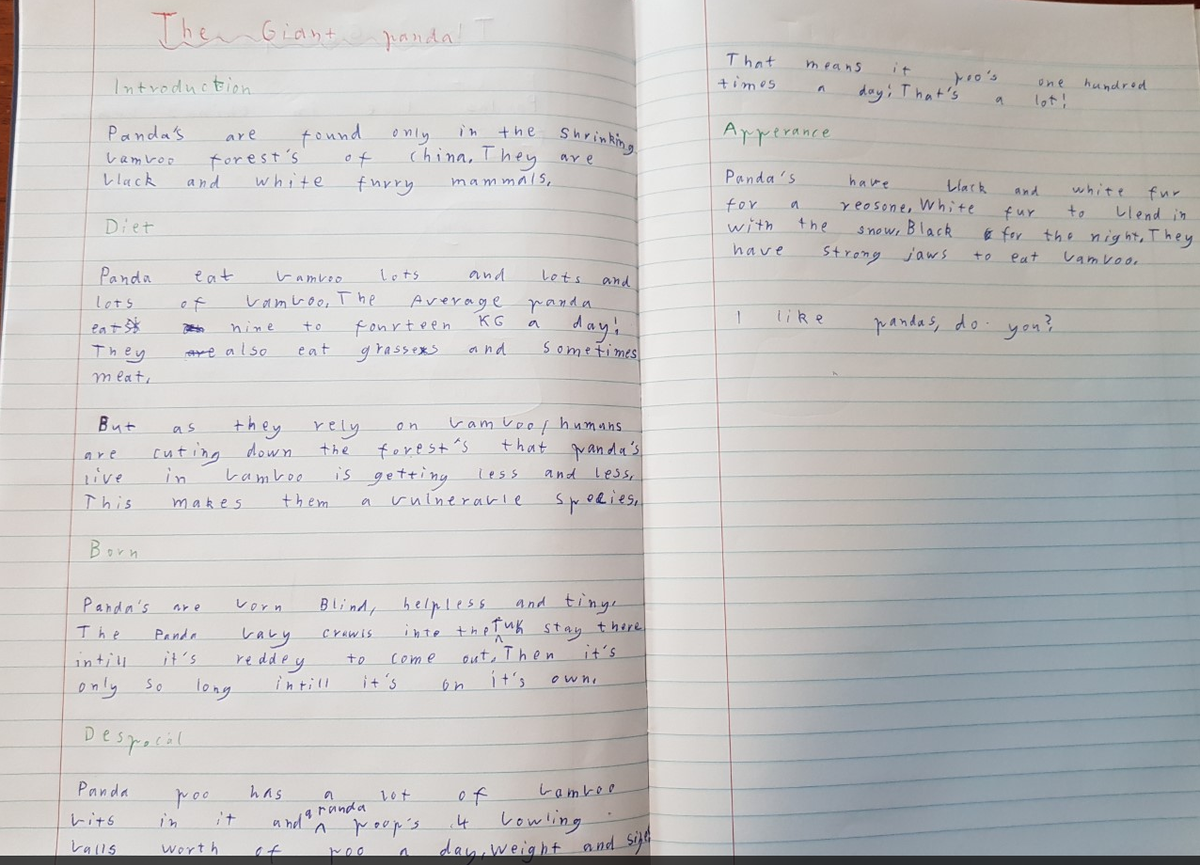 The Giant panda
Introduction
Panda's are found only in the shrinking
bamboo forest's of china. They are
black and white furry mammals.
Diet
Panda eat bamboo lots and lots and
lots of bamboo. The Average panda
eats nine to fourteen KG a day!
They also eat grasses and sometimes
meat.
But as they rely on bamboo, humans
are cuting down the forest's that panda's
live in bamboo is getting less and less.
This makes them a vulnerable species.
Born
Panda's are born Blind, helpless and tiny.
The Panda baby crawls into the stay there
intill it's reddey to come out. Then it's
only so long intill it's on it's own.
Despocal
Panda poo has a lot of bamboo
bits in it and a panda poop's 14 bowling
balls worth of poo a day, weight and size
That means it poo's one hundred
times a day! That's a lot!
Apperance
Panda's have black and white fur
for a reosone. White fur to blend in
with the snow. Black for the night. They
have strong jaws to eat bamboo.
I like pandas, do you?